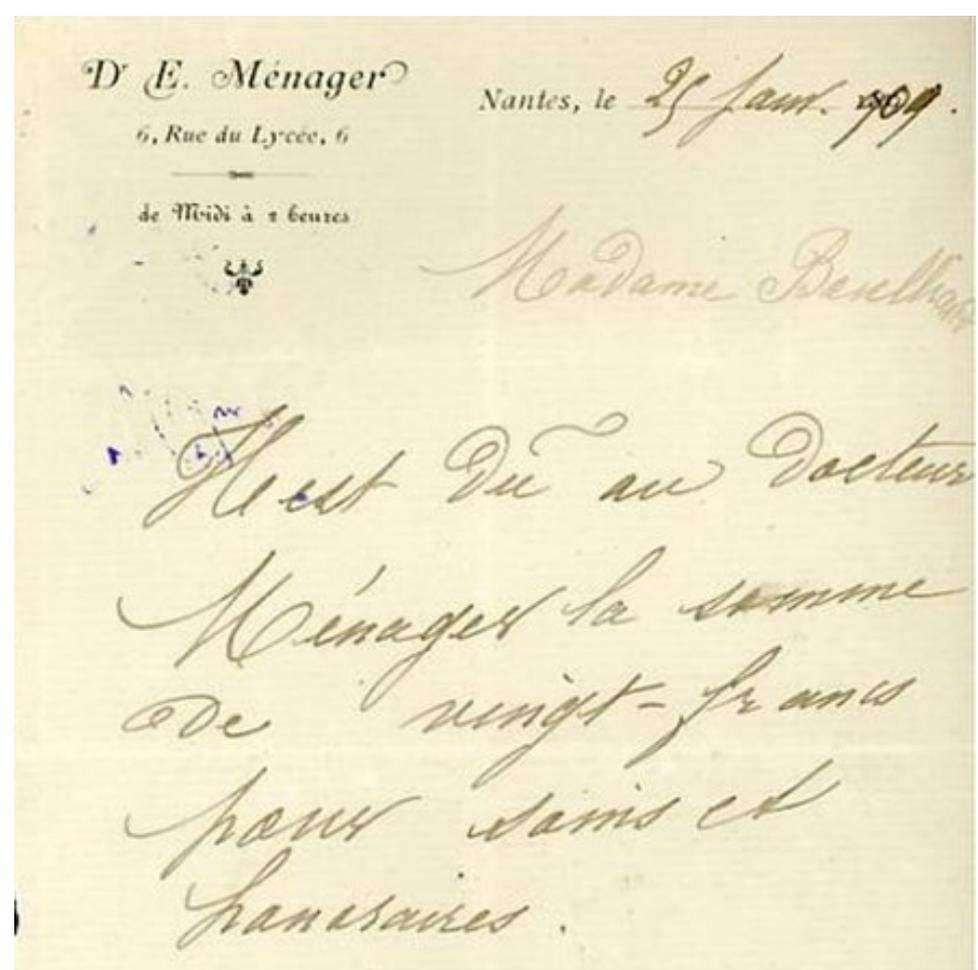 Dr E. Ménager
6, Rue du Lycée, 6
de Midi à 2 heures
Nantes, le 25 Janv. 1909.
Madame
Il est dû au Docteur
Ménager la somme
de vingt-francs
pour soins et
honoraires.